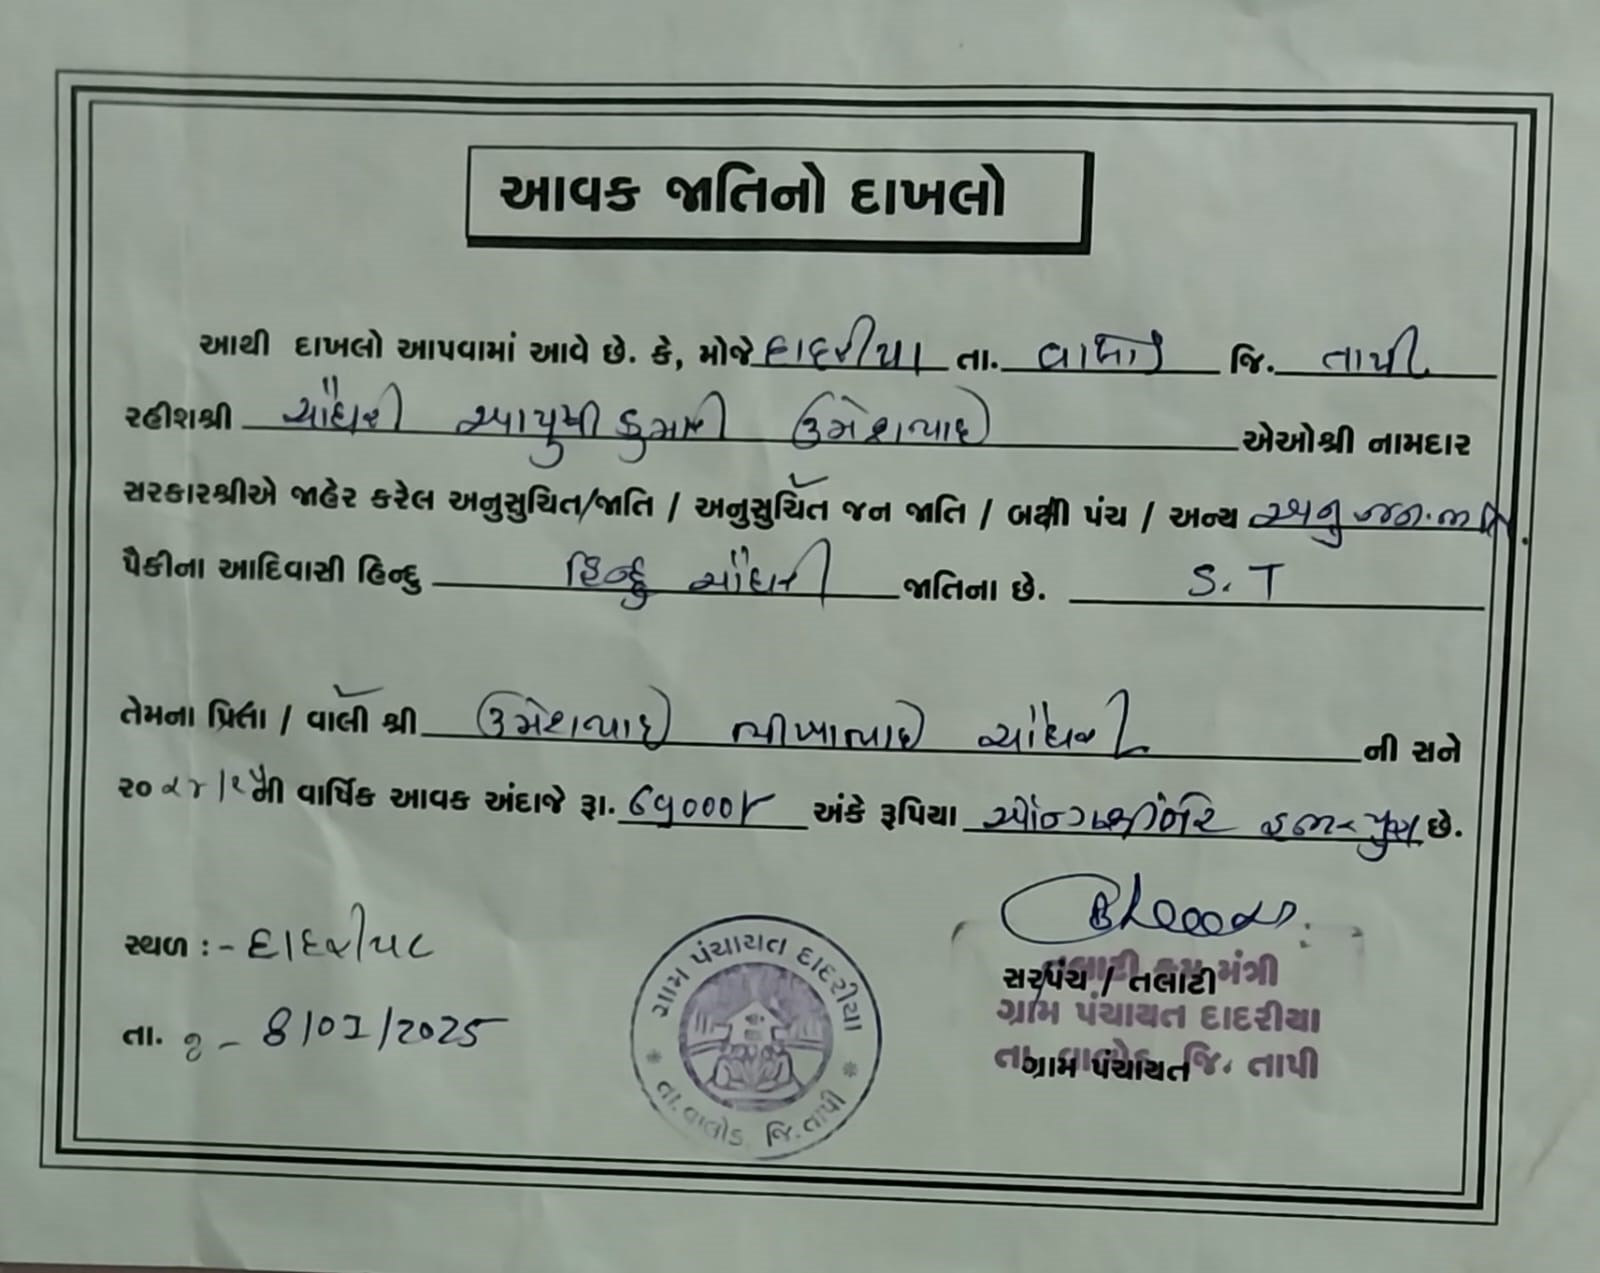 આવક જાતિનો દાખલો
આથી દાખલો આપવામાં આવે છે. કે, મોજે દાદરીયા તા. વાલોડ જિ. તાપી
રહીશશ્રી ચૌધરી આયુષી કુમારી ઉમેશભાઇ એઓશ્રી નામદાર
સરકારશ્રીએ જાહેર કરેલ અનુસુચિત/જાતિ / અનુસુચિત જન જાતિ / બક્ષી પંચ / અન્ય અનુ.જન.જાતિ.
પૈકીના આદિવાસી હિન્દુ હિન્દુ ચૌધરી જાતિના છે. S.T
તેમના પિતા / વાલી શ્રી ઉમેશભાઇ ભીખાભાઇ ચૌધરી ની સને
૨૦૨૪/૨૫મી વાર્ષિક આવક અંદાજે રૂા. ૭૫૦૦૦/- અંકે રૂપિયા હજાર પુરા છે.
સ્થળ :- દાદરીયા
તા. 8/07/2025
ગ્રામ પંચાયત દાદરીયા
તા. વાલોડ. જિ. તાપી
સરપંચ / તલાટી
ગ્રામ પંચાયત
તલાટી કમ મંત્રી
ગ્રામ પંચાયત દાદરીયા
તા. વાલોડ જિ. તાપી